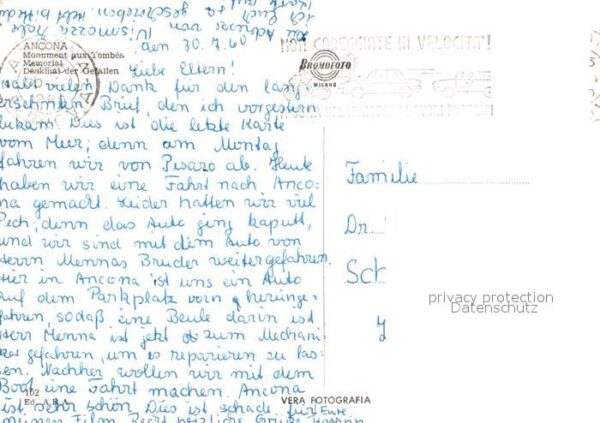 den 30.7.60
Liebe Eltern!
Habt vielen Dank für den lang
ersehnten Brief, den ich vorgestern
bekam! Dies ist die letzte Karte
vom Meer; denn am Montag
fahren wir von Pesaro ab. Heute
haben wir eine Fahrt nach Anco-
na gemacht. Leider hatten wir viel
Pech; denn das Auto ging kaputt,
und wir sind mit dem Auto von
Herrn Mennas Bruder weitergefahren.
Hier in Ancona ist uns ein Auto
auf dem Parkplatz vorn hereinge-
fahren, sodaß eine Beule darin ist
Herr Menna ist jetzt zum Mechani-
ker gefahren, um es reparieren zu las-
sen. Nachher wollen wir mit dem
Boot eine Fahrt machen. Ancona
ist sehr schön. Dies ist schade für
meinen Film. Recht herzliche Grüße Eure
ANCONA
Monument aux Tombés
Memorial
Denkmal der Gefallen
NON GAREGGIATE IN VELOCITA'!
BROMOFOTO
MILANO
Familie
Dr.
Sch
privacy protection
Datenschutz
102
Ed. A.B.A.
VERA FOTOGRAFIA